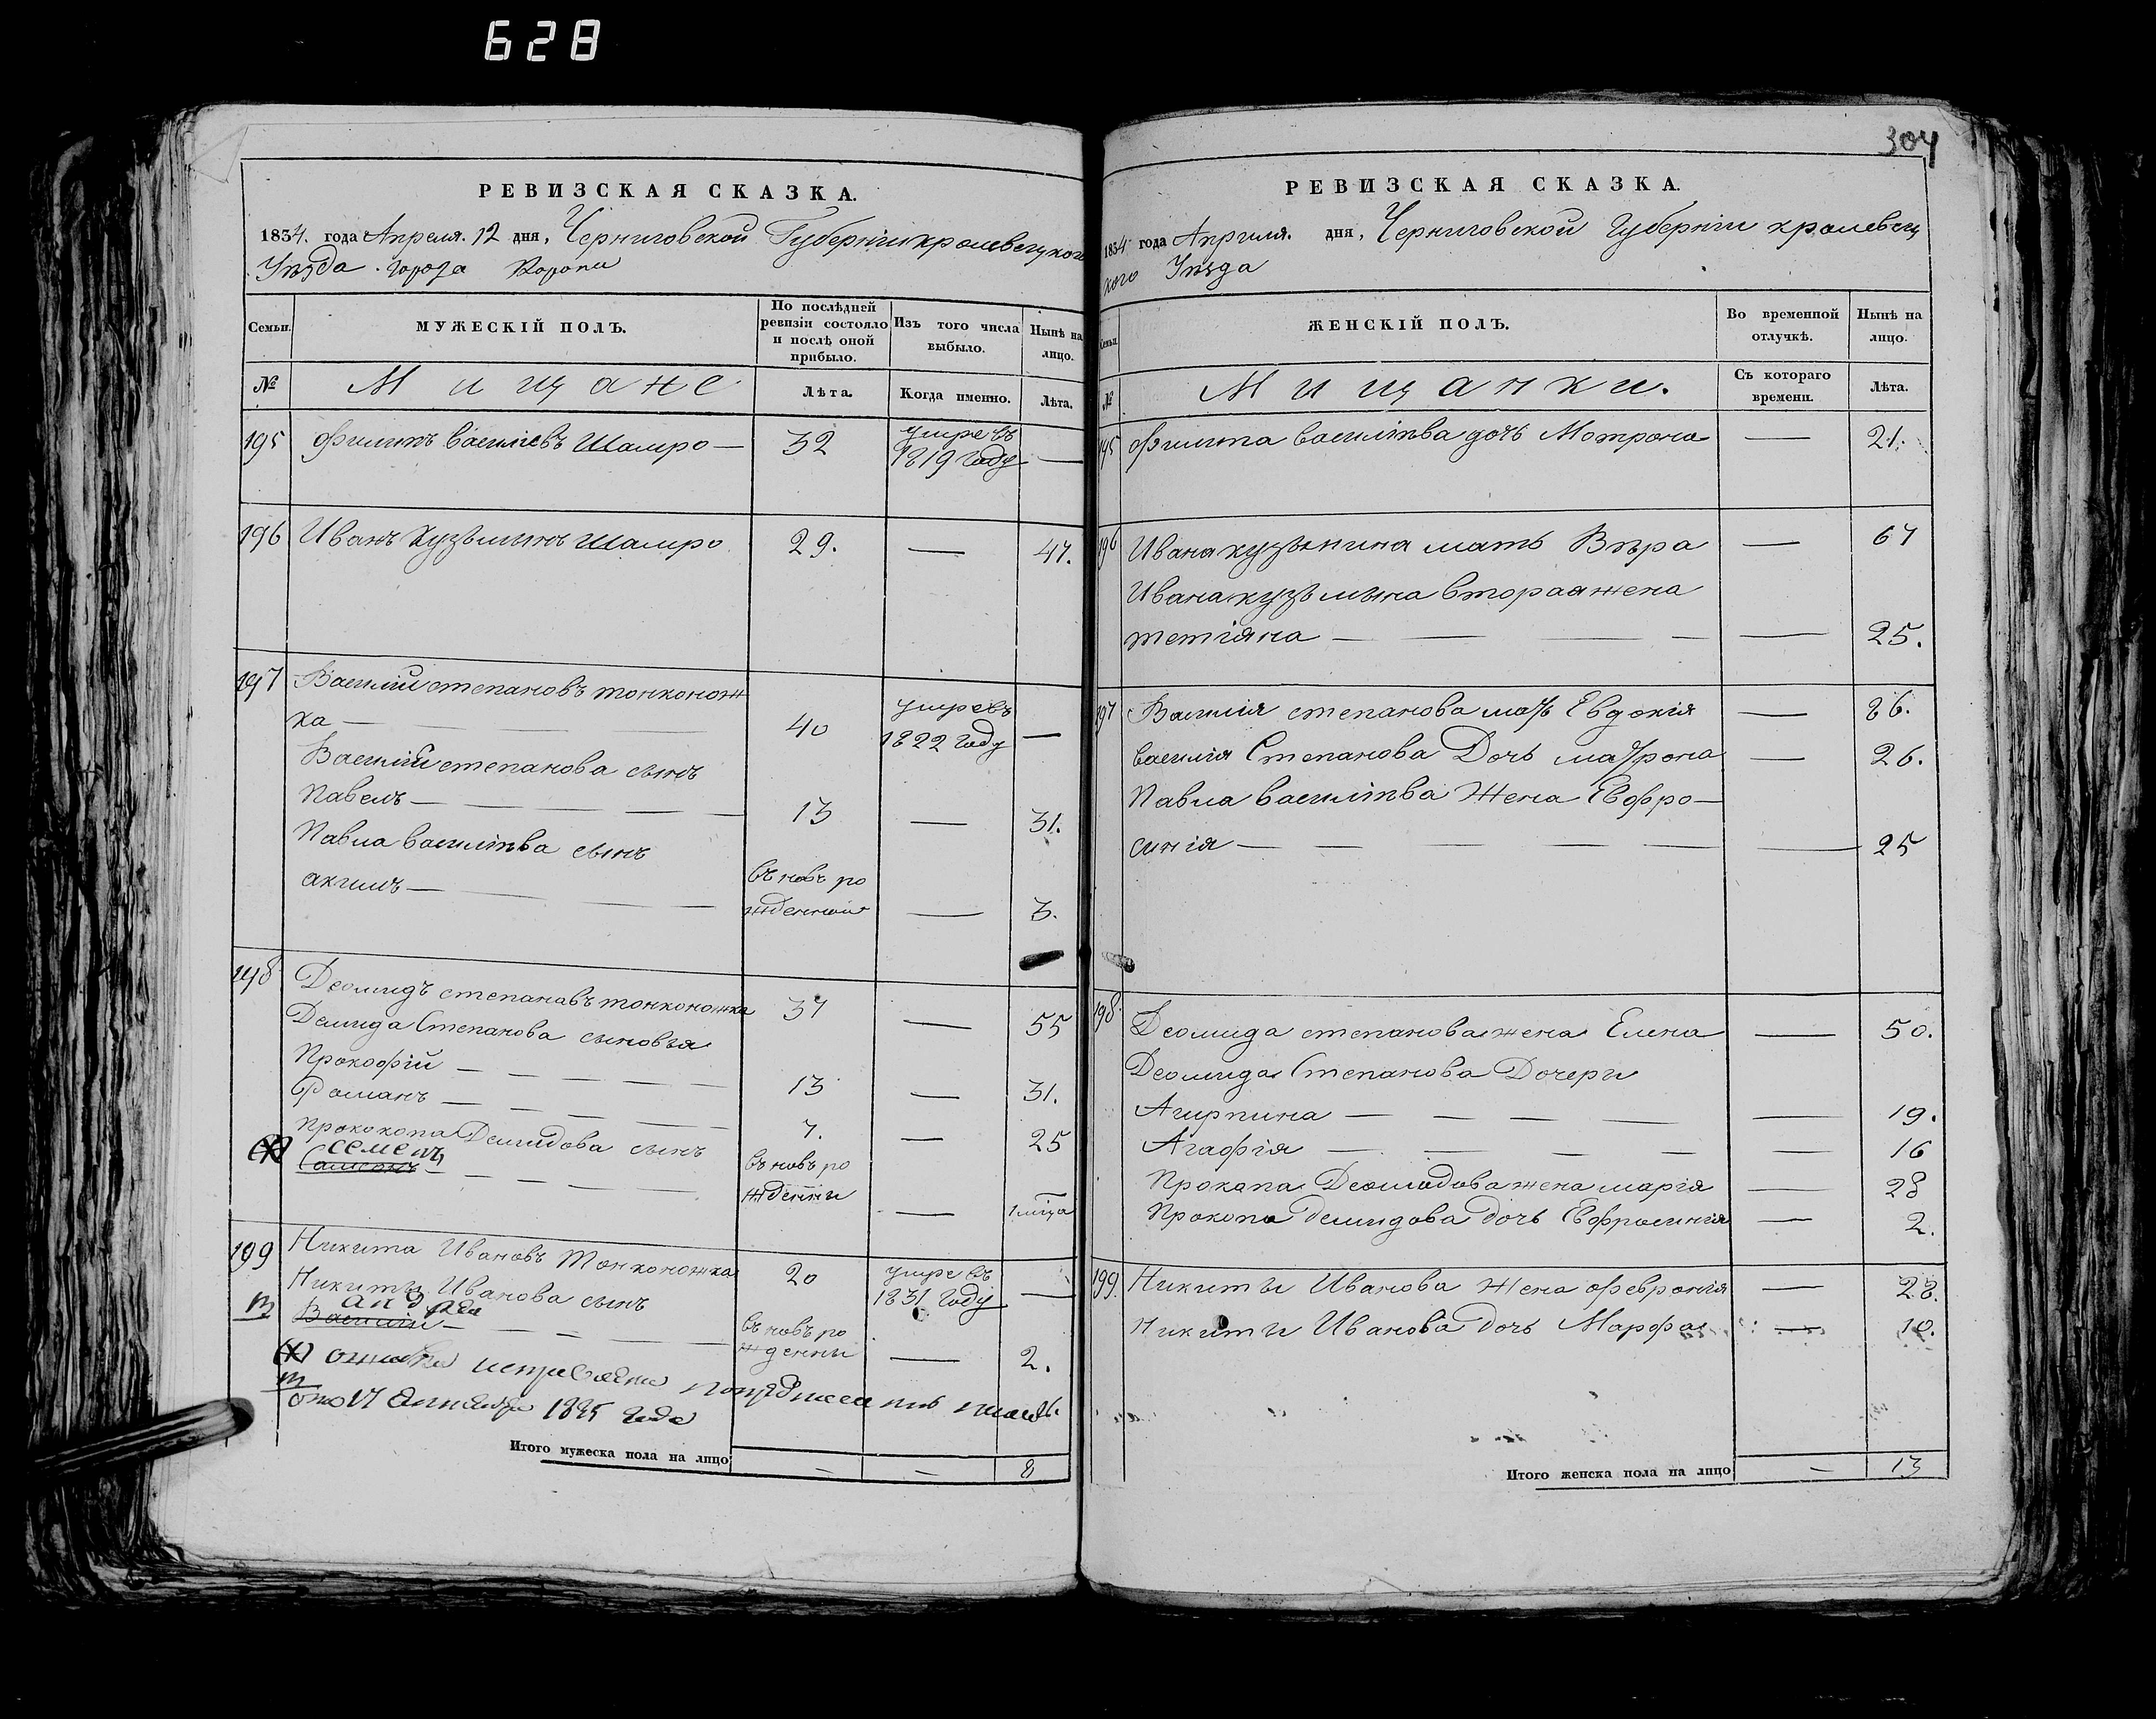 628
РЕВИЗСКАЯ СКАЗКА.
1834. года Апреля. 12 дня, Черниговской Губерніи кролевецкого
Уѣзда. города Коропа
Семьи. МУЖЕСКІЙ ПОЛЪ. По послѣдней ревизіи состояло и послѣ оной прибыло. Изъ того числа выбыло. Нынѣ на лицо.
№ Мищане Лѣта. Когда именно. Лѣта.
195 Филипъ василіевъ Шамро — 32 умре въ 1819 году —
196 Иванъ Кузьминъ Шамро 29. — 47.
197 Василій степановъ тонконож
ка — 40 умре въ 1822 году —
Василій степанова сынъ
Павелъ — 13 — 31.
Павла василіева сынъ
акимъ — въ новъ ро
жденной — 3.
198 Деомидъ степанавъ тонконожка 37 — 55
Демида Степанова сыновья
Прокофій — 13 — 31.
Романъ — 7. — 25
Прококопа Демидова сынъ
семенъ
Самсонъ — въ новъ ро
ждении — 1 міца
199 Никита Ивановъ Тонконожка 20 умре въ 1831 году —
Никиты Иванова сынъ
андрей
Василій — въ новъ ро
ждении — 2.
ошибка исправлена
1835 года
Итого мужеска пола на лицо — — 8
304
РЕВИЗСКАЯ СКАЗКА.
1834 года Априля. дня, Черниговской Губерніи кролевец
кого Уѣзда
Семьи. ЖЕНСКІЙ ПОЛЪ. Во временной отлучкѣ. Нынѣ на лицо.
№ Мищанки. Съ котораго времени. Лѣта.
195 Филипа василіѣва дочь Мотрона — 21.
196 Ивана кузьмина мать Вѣра — 67
Ивана кузьмина вторая жена
тетіяна — — 25.
197 Василія степанова мать Евдокія — 86.
василія Степанова Дочь матрона — 26.
Павла василіѣва Жена Евфро—
синія — — 25
198. Деомида степанова жена Елена — 50.
Деомида Степанова Дочери
Агирпина — — 19.
Агафія — — 16
Прокопа Деомидова жена марія — 28
Прокопа демидова дочь Евфросинія — 2.
199. Никиты Иванова Жена февронія — 28.
Никиты Иванова дочь Марфа — 10.
Итого женска пола на лицо — 13